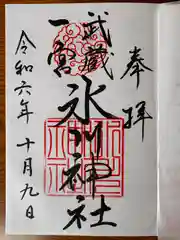 奉拝
武蔵
一宮
氷川神社
令和六年十月九日